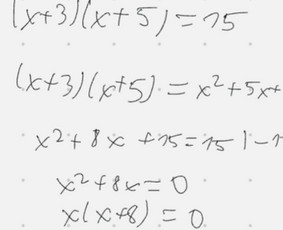 (x+3)(x+5)=15
(x+3)(x+5)=x²+5x+
x²+8x+15=15 |-1
x²+8x=0
x(x+8)=0